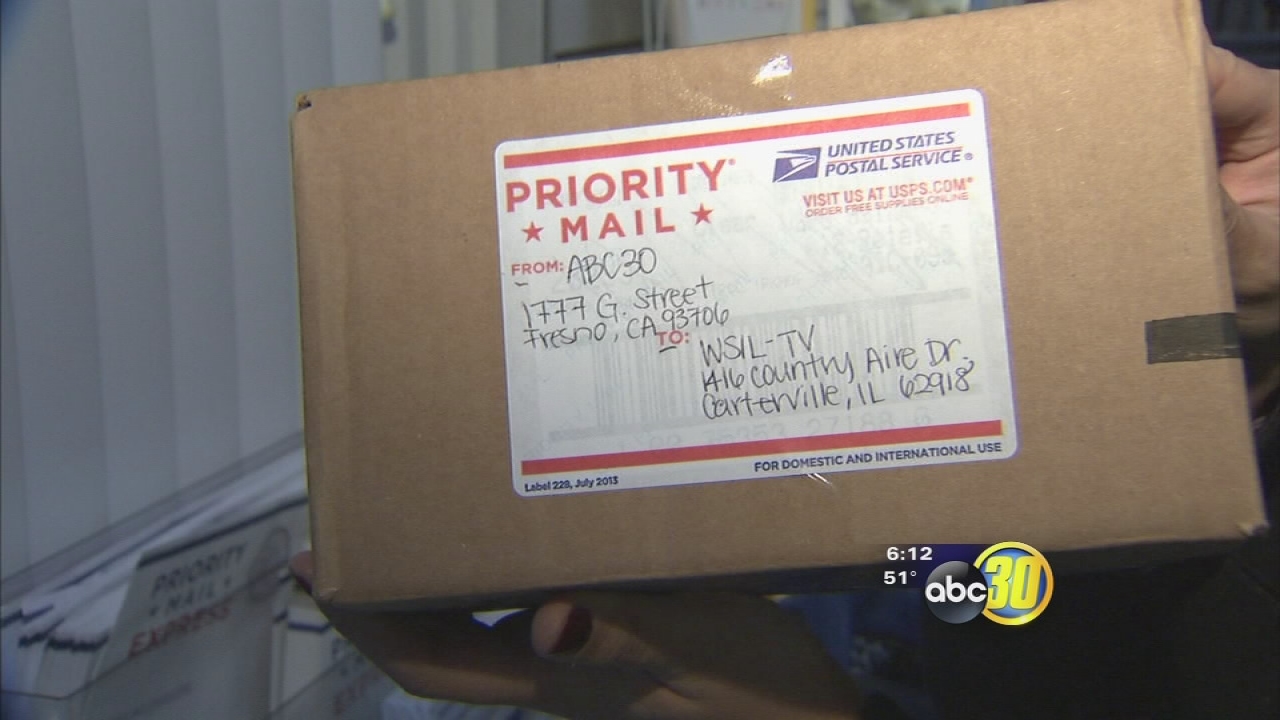 PRIORITY®
★ MAIL ★
UNITED STATES
POSTAL SERVICE®
VISIT US AT USPS.COM®
ORDER FREE SUPPLIES ONLINE
FROM: ABC30
1777 G. Street
Fresno, CA 93706
TO: WSIL-TV
1416 Country Aire Dr.
Carterville, IL 62918
FOR DOMESTIC AND INTERNATIONAL USE
Label 228, July 2013
PRIORITY
★ MAIL ★
EXPRESS
6:12
51°
abc 30